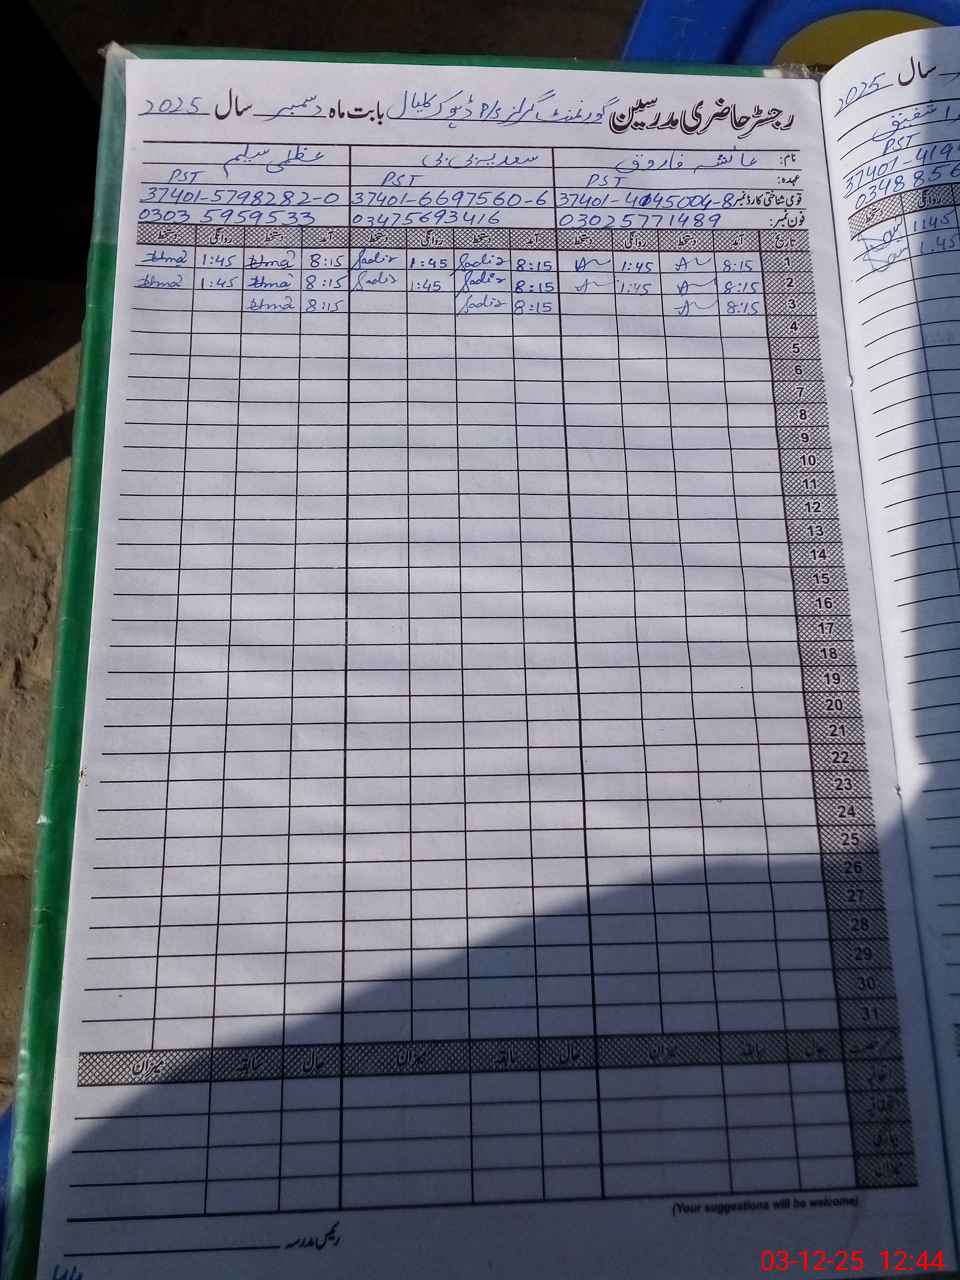 رجسٹر حاضری مدرسین گورنمنٹ گرلز P/S ڈہوک کلیال بابت ماہ دسمبر سال 2025
نام: عائشہ فاروق سعدیہ بی بی عظمٰی سلیم
عہدہ: PST PST PST
قومی شناختی کارڈ نمبر 37401-4045004-8 37401-6697560-6 37401-5798282-0
فون نمبر: 03025771489 03475693416 0303 5959533
تاریخ آمد دستخط روانگی دستخط آمد دستخط روانگی دستخط آمد دستخط روانگی دستخط
8:15 1:45 8:15 Sadia 1:45 Sadia 8:15 Uzma 1:45 Uzma
2 8:15 1:45 8:15 Sadia 1:45 Sadia 8:15 Uzma 1:45 Uzma
3 8:15 8:15 Sadia 8:15 Uzma
4
5
6
7
8
9
10
11
12
13
14
15
16
17
18
19
20
21
22
23
24
25
26
27
28
29
30
31
رخصت حال سابقہ میزان حال سابقہ میزان حال سابقہ میزان
میزان
(Your suggestions will be welcome)
رئیس مدرسہ
سال 2025
PST
37401-419
0348856
روانگی دستخط
1:45
1:45
03-12-25 12:44